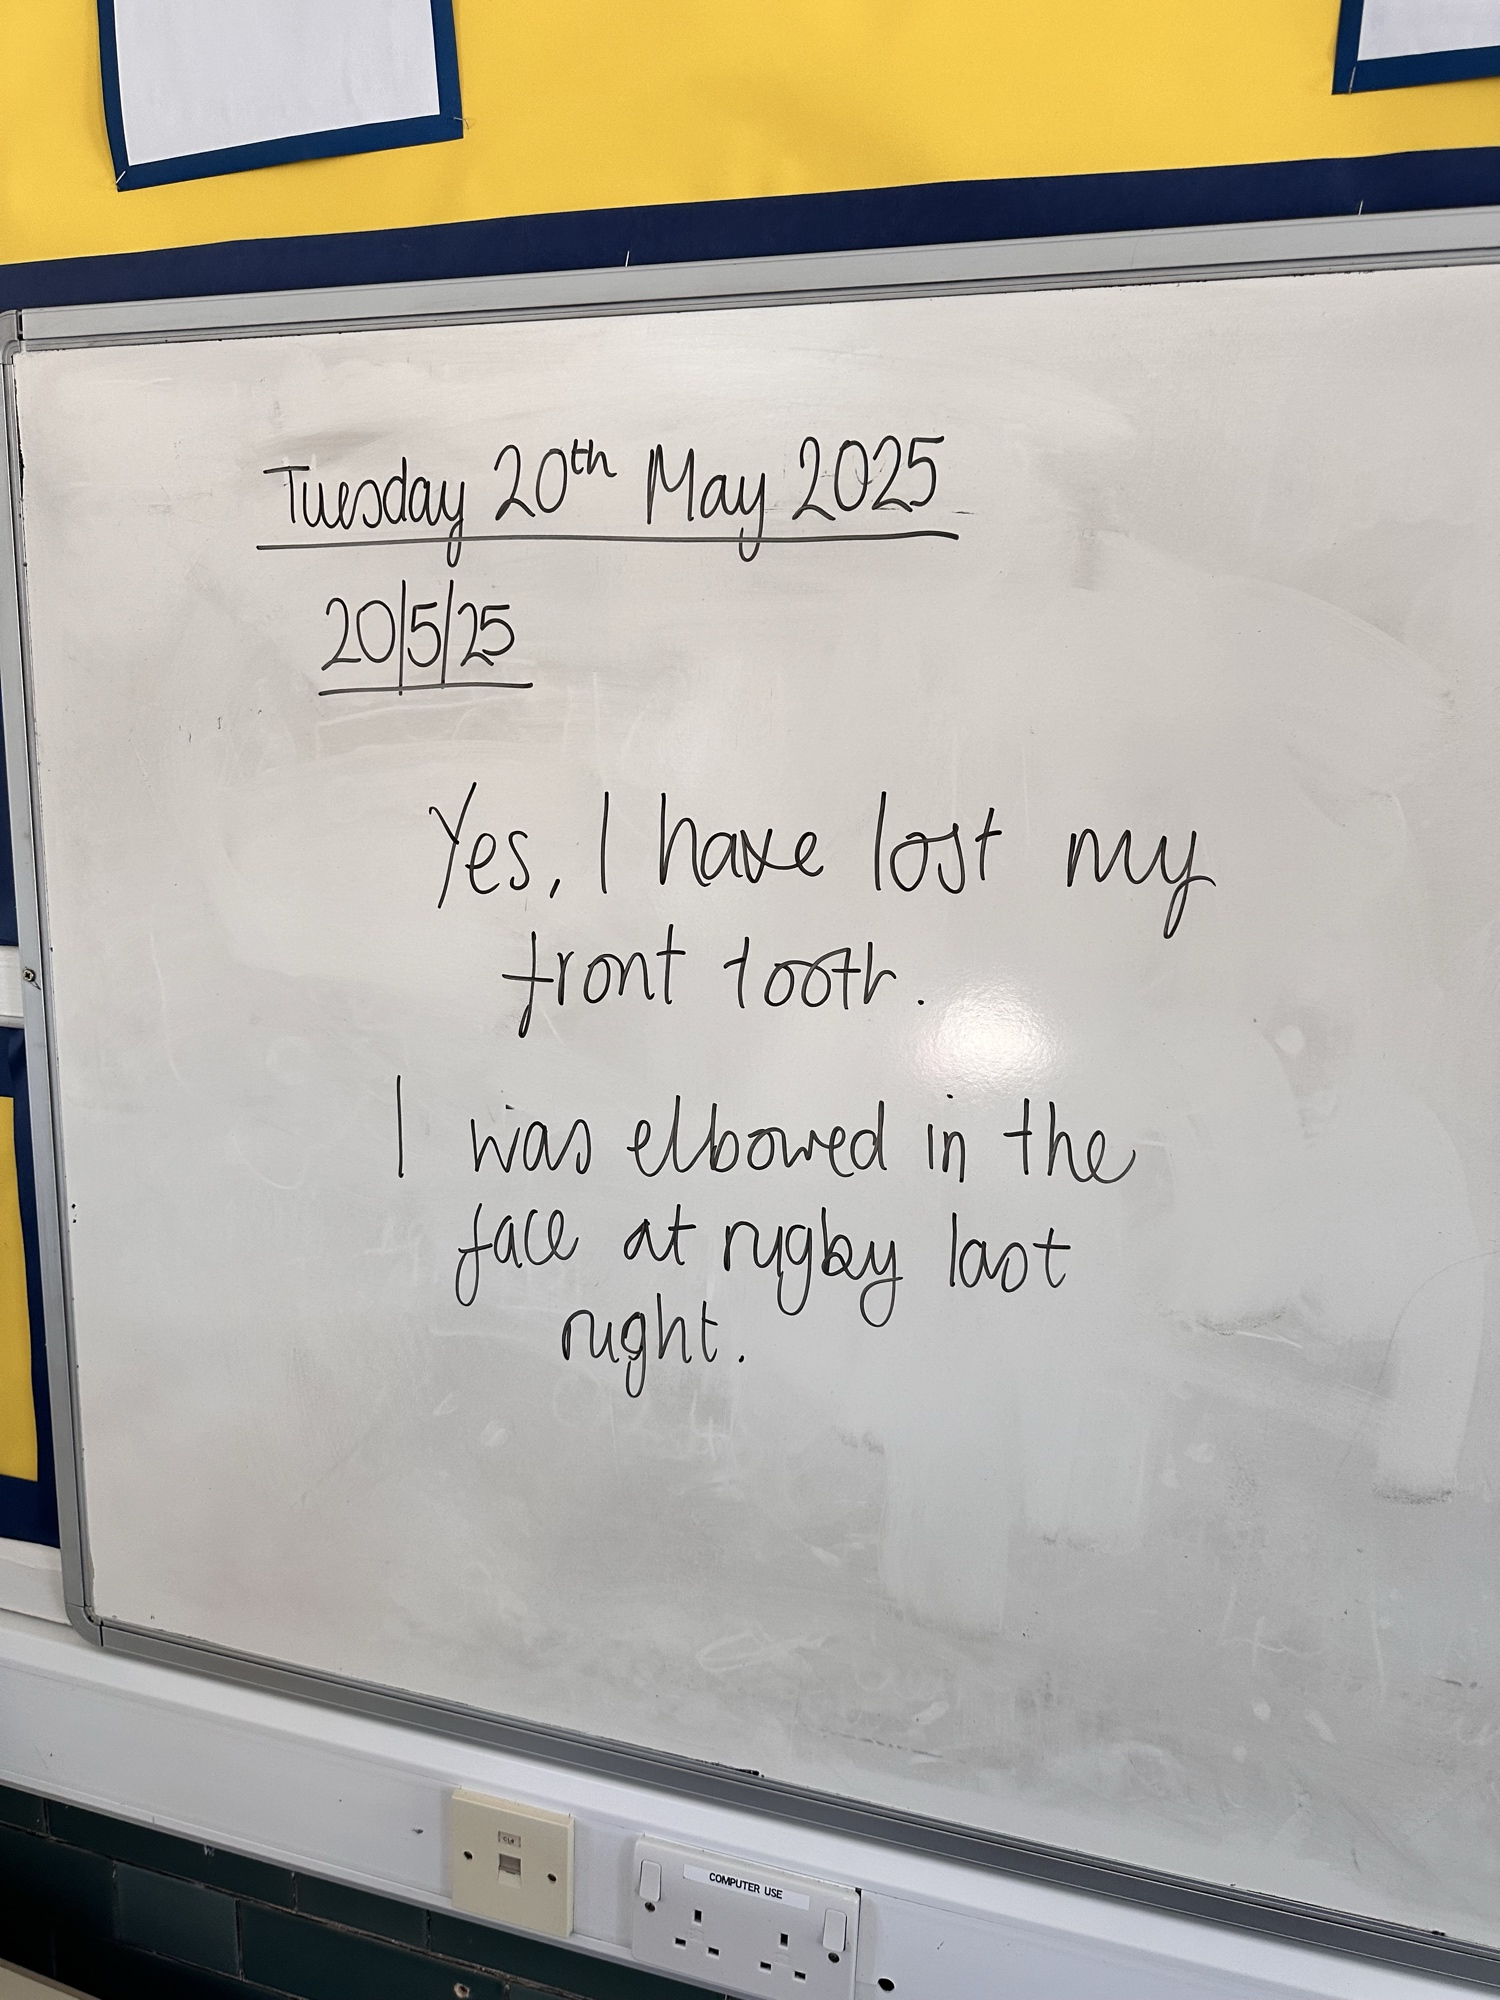 Tuesday 20th May 2025
20/5/25
Yes, I have lost my
front tooth.
I was elbowed in the
face at rugby last
night.
COMPUTER USE